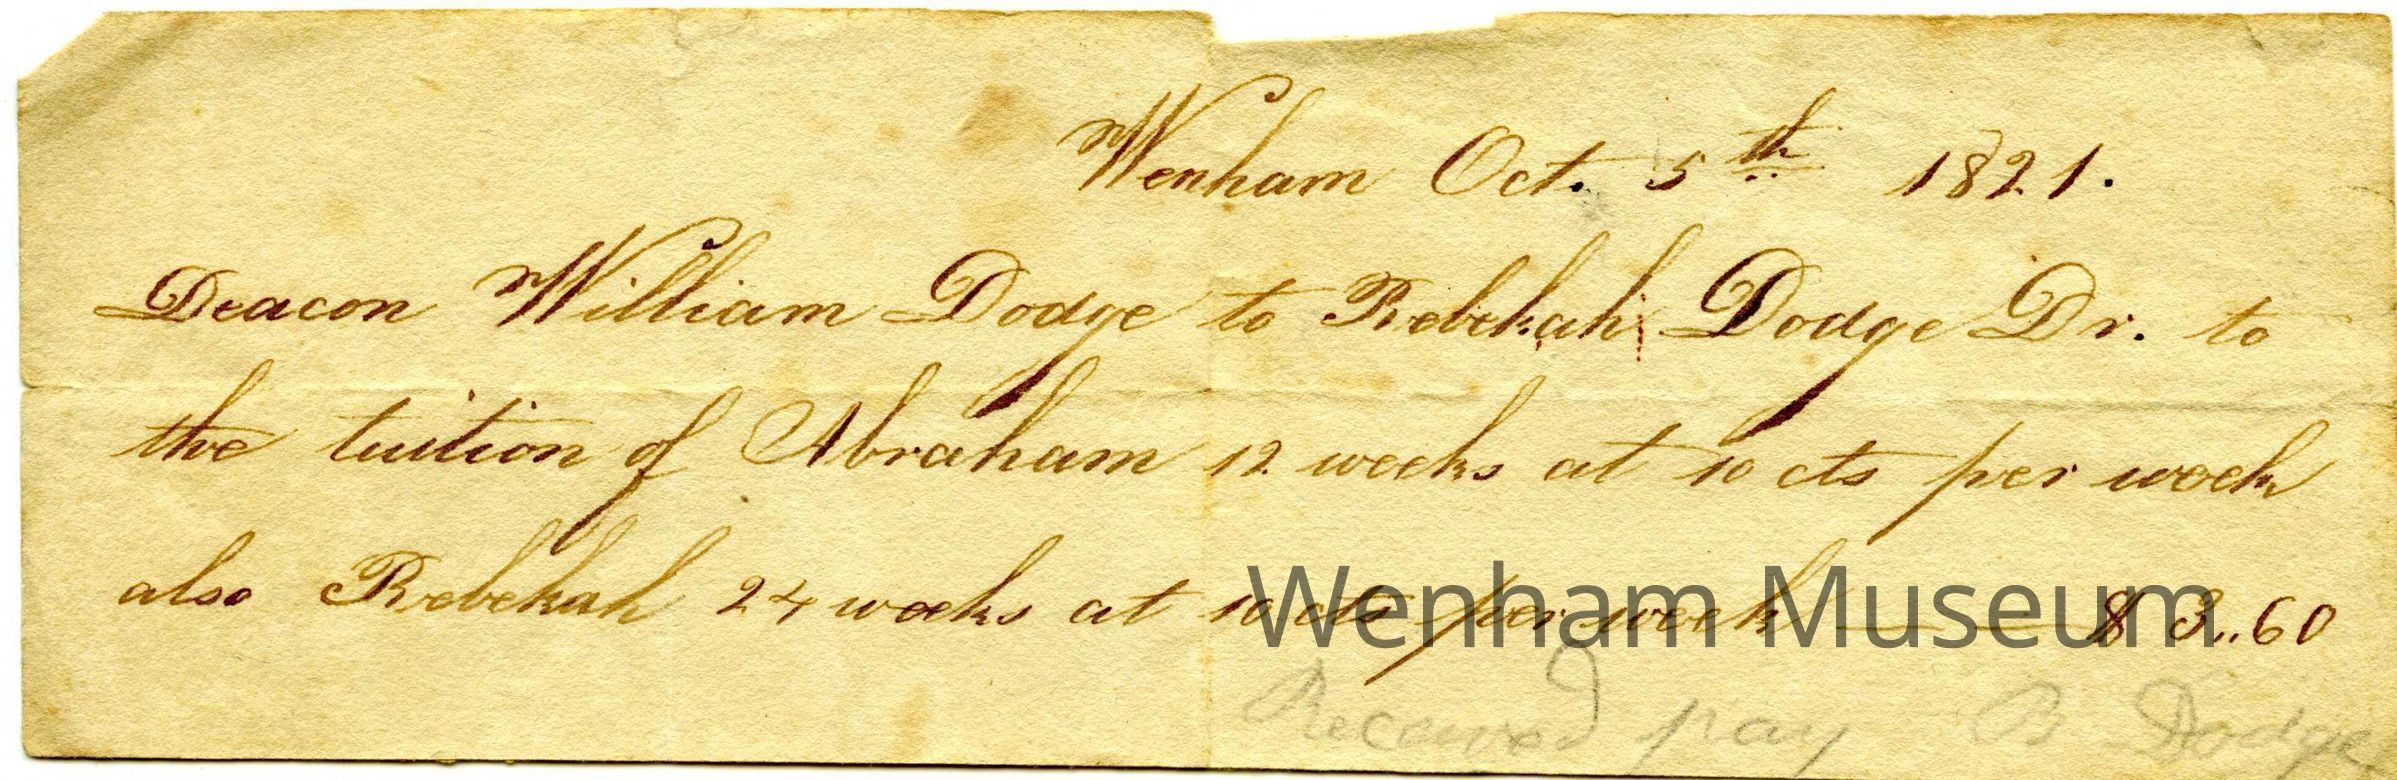 Wenham Oct. 5th 1821.
Deacon William Dodge to Rebekah Dodge Dr. to
the tuition of Abraham 12 weeks at 10 cts per week
also Rebekah 24 weeks at 10 cts per week $ 3,,60
Wenham Museum
Received pay R Dodge